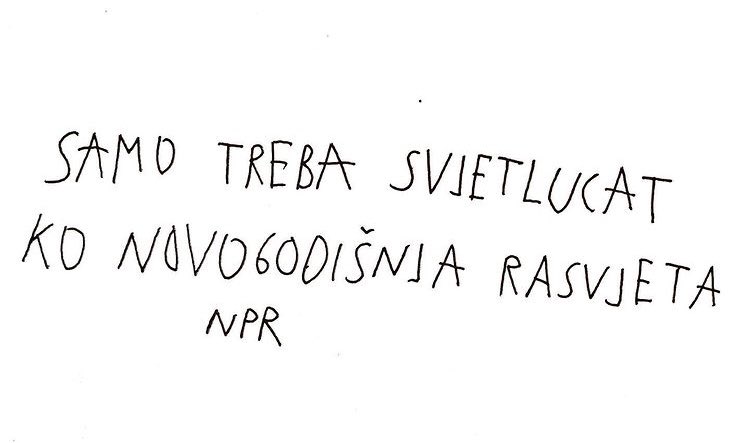 SAMO TREBA SVJETLUCAT
KO NOVOGODIŠNJA RASVJETA
NPR